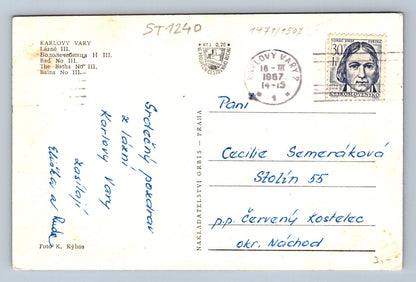 ST-1240
1471/1507
KARLOVY VARY
Lázně III.
Водолечебница Н III.
Bad No III.
The Baths No III.
Bains No III.
Kčs 0,20
KARLOVY VARY 2
16-III
1967
14-15
30
ČESKOSLOVENSKO
Srdečný pozdrav
z lázní
Karlovy Vary
zasílají
Eliška a Ruda
Foto K. Kýhos
NAKLADATELSTVÍ ORBIS - PRAHA
Paní
Cecilie Semeráková
Stolín 55
p.p. Červený Kostelec
okr. Náchod
3,-